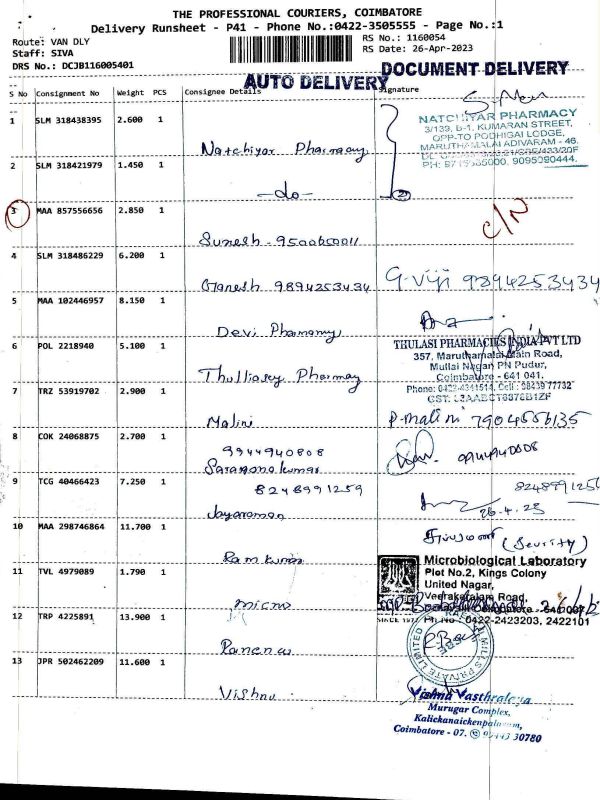 THE PROFESSIONAL COURIERS, COIMBATORE
Delivery Runsheet - P41 - Phone No.:0422-3505555 - Page No.:1
Route: VAN DLY
RS No.: 1160054
Staff: SIVA
RS Date: 26-Apr-2023
DRS No.: DCJB116005401
AUTO DELIVERY DOCUMENT DELIVERY
S No Consignment No Weight PCS Consignee Details Signature
1 SLM 318438395 2.600 1
Natchiyar Pharmacy
NATCHIYAR PHARMACY
3/139, b-1, KUMARAN STREET,
OPP-TO PODHIGAI LODGE,
MARUTHAMALAI ADIVARAM - 46.
9095090444.
2 SLM 318421979 1.450 1
-do-
3 MAA 857556656 2.850 1
C/N
Suresh - 9500650011
4 SLM 318486229 6.200 1
Ganesh 9894253434
G-Viji 9894253434
5 MAA 102446957 8.150 1
Devi Pharmamy
6 POL 2218940 5.100 1
Thulliasey Pharmay
THULASI PHARMACIES INDIA PVT LTD
357, Maruthamalai Main Road,
Mullai Nagar, PN Pudur,
Coimbatore - 641 041.
Phone: 0422-4341514, Cell : 98439 77732
7 TRZ 53919702 2.900 1
Malini
P-malini 7904556135
8 COK 24068875 2.700 1
9944940808
Saravanakumar
9944940808
9 TCG 40466423 7.250 1
8248991259
Jayaraman
26-4-23
10 MAA 298746864 11.700 1
Ram kumar
(Security)
11 TVL 4979089 1.790 1
micro
Microbiological Laboratory
Plot No.2, Kings Colony
United Nagar,
Veerakeralam Road,
Ph No : 0422-2423203, 2422101
12 TRP 4225891 13.900 1
MILLS PRIVATE LIMITED
13 JPR 502462209 11.600 1
Vishnu
Vishnu Vasthralaya
Murugar Complex,
Kalickanaickenpalayam,
Coimbatore - 07. 94443 30780